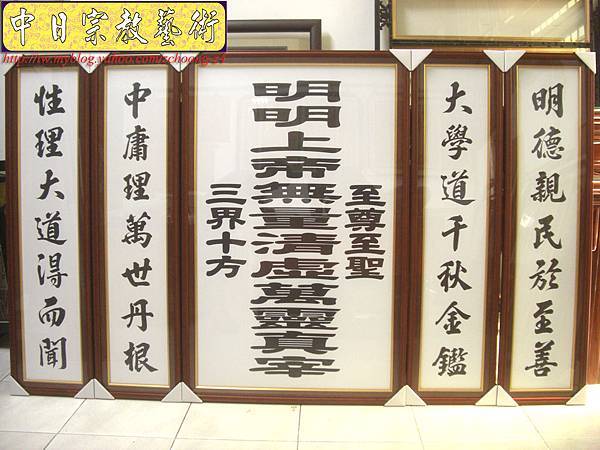 中日宗教藝術
http://tw.myblog.yahoo.com/zchoong24
明德親民於至善
大學道千秋金鑑
至尊至聖
明明上帝無量清虛萬靈真宰
三界十方
中庸理萬世丹根
性理大道得而聞